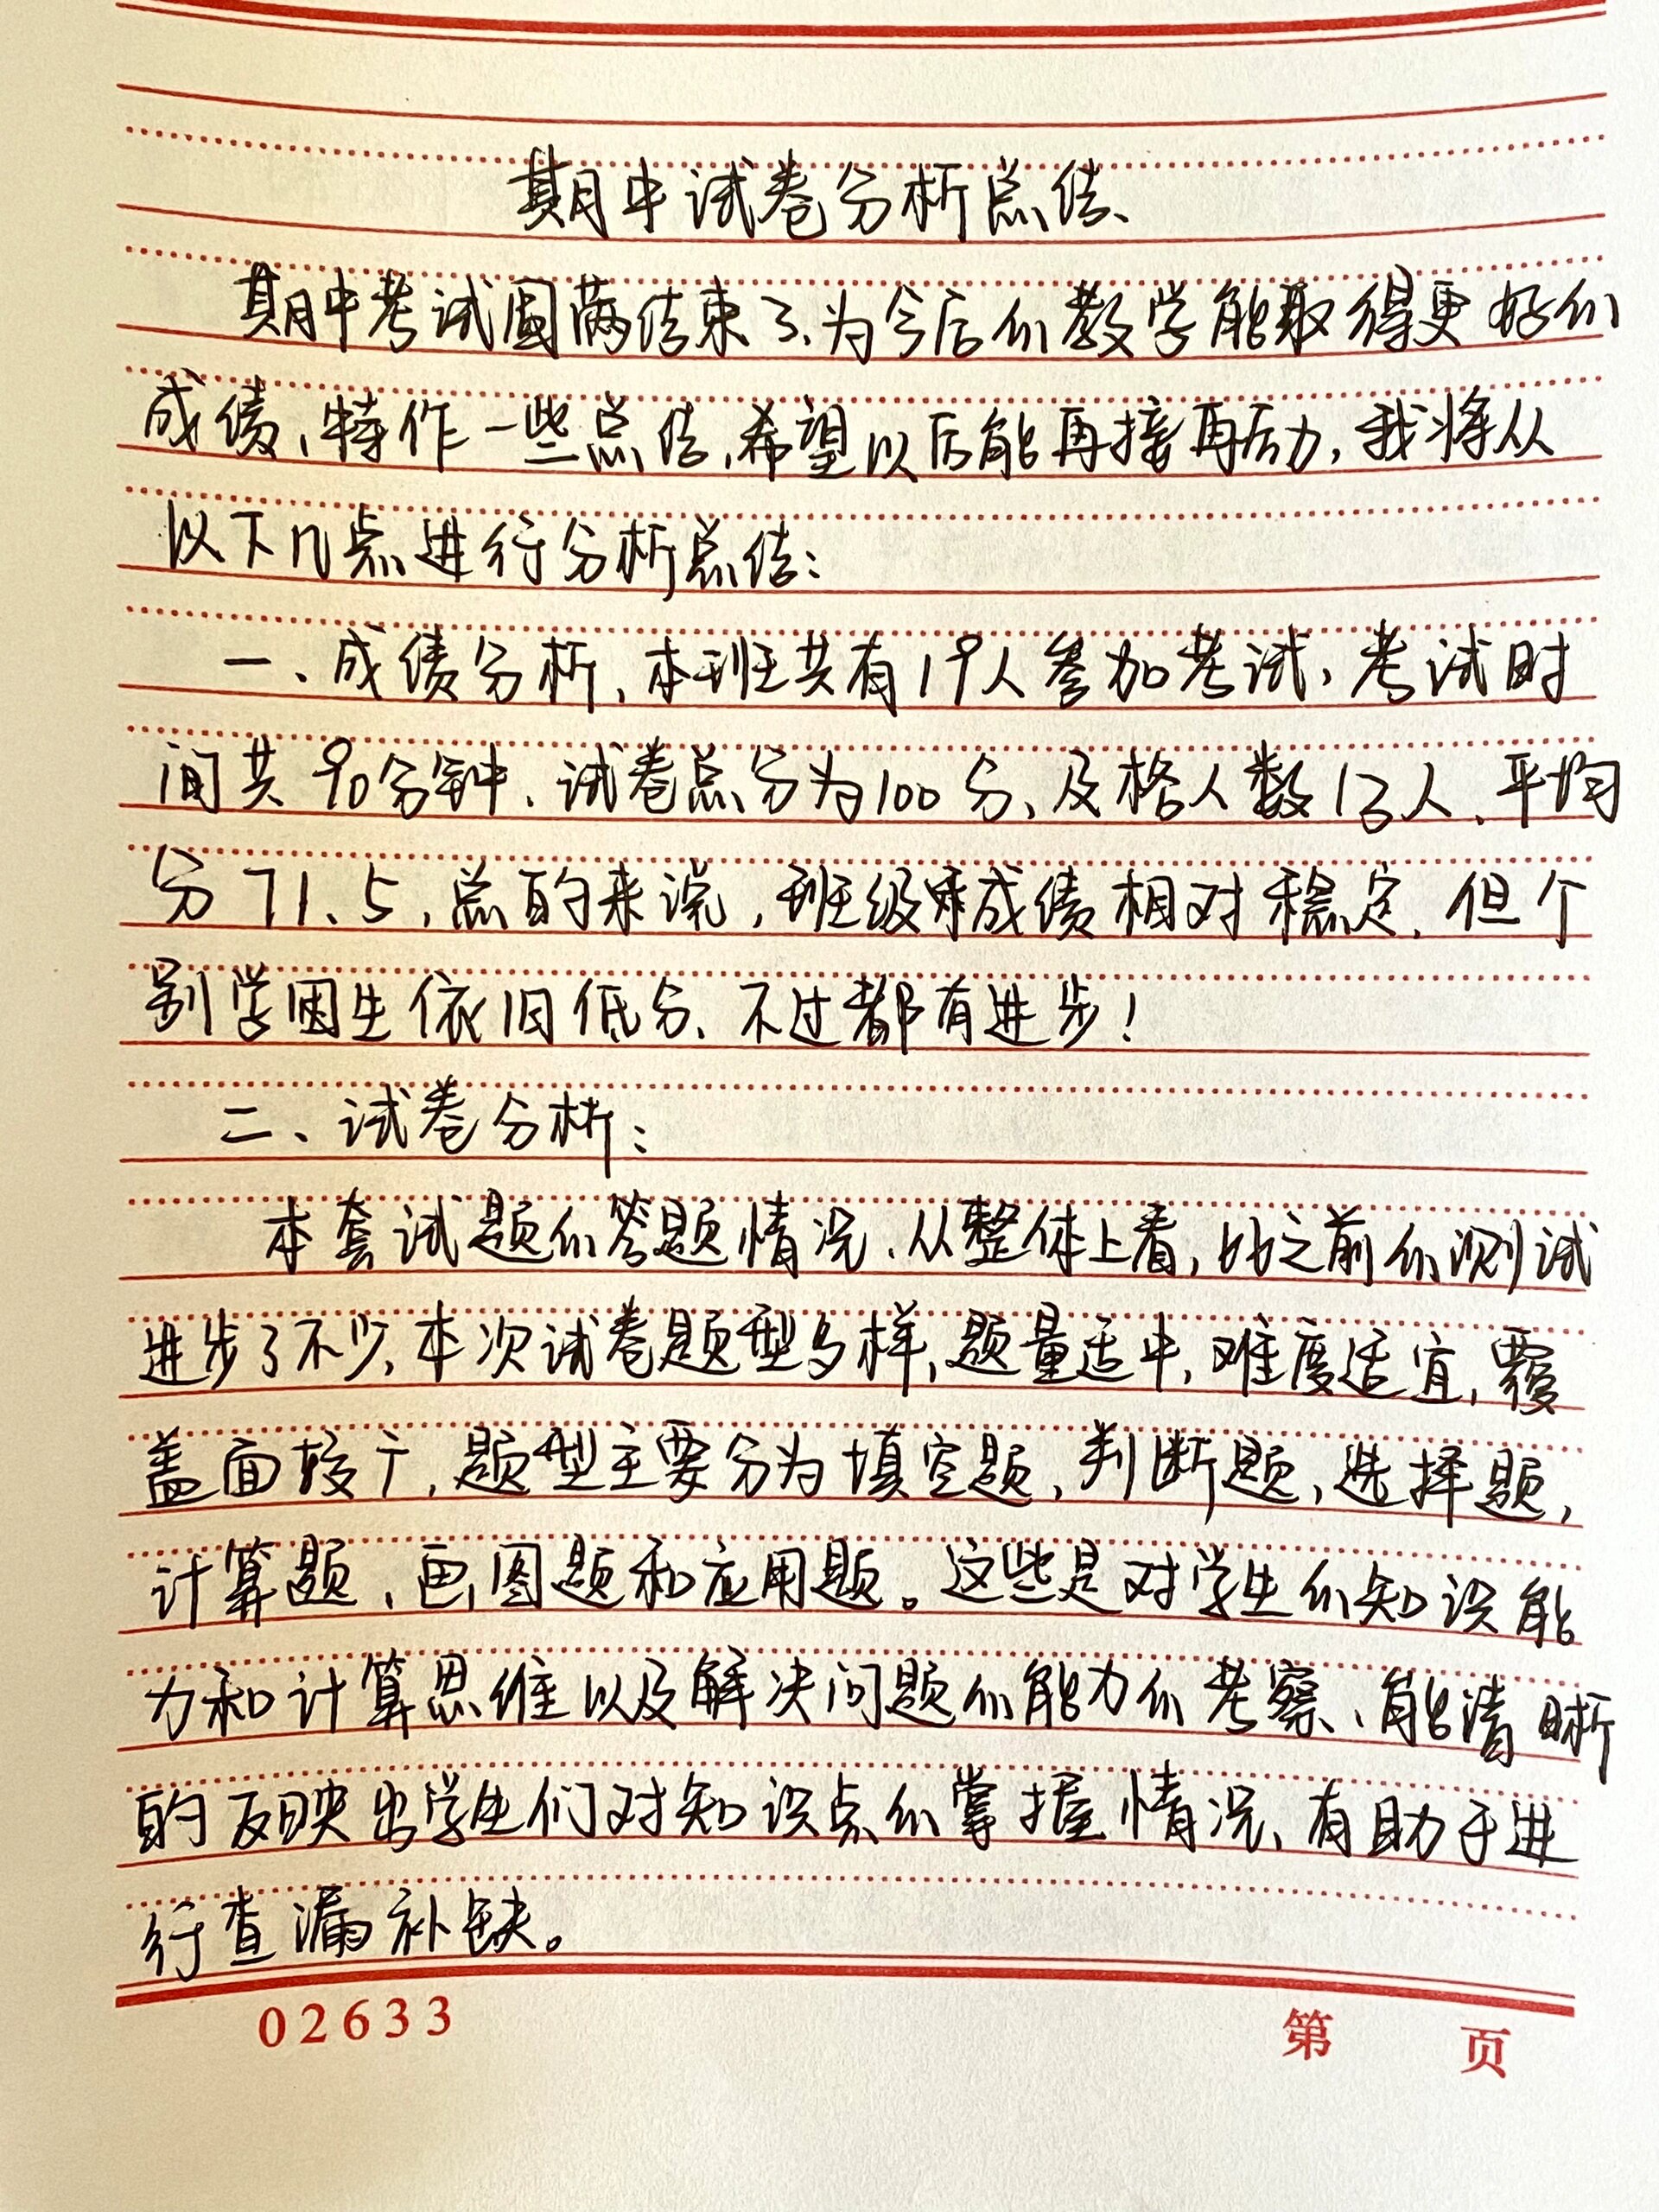 期中试卷分析总结
期中考试圆满结束了、为今后的教学能取得更好的
成绩,特作一些总结,希望以后能再接再厉,我将从
以下几点进行分析总结:
一、成绩分析,本班共有19人参加考试,考试时
间共90分钟、试卷总分为100分、及格人数13人、平均
分71.5,总的来说,班级成绩相对稳定,但个
别学困生依旧低分、不过都有进步!
二、试卷分析:
本套试题的答题情况、从整体上看,比之前的测试
进步了不少,本次试卷题型多样,题量适中,难度适宜,覆
盖面较广,题型主要分为填空题,判断题,选择题,
计算题、画图题和应用题。这些是对学生的知识能
力和计算思维以及解决问题的能力的考察、能清晰
的反映出学生们对知识点的掌握情况、有助于进
行查漏补缺。
02633
第 页